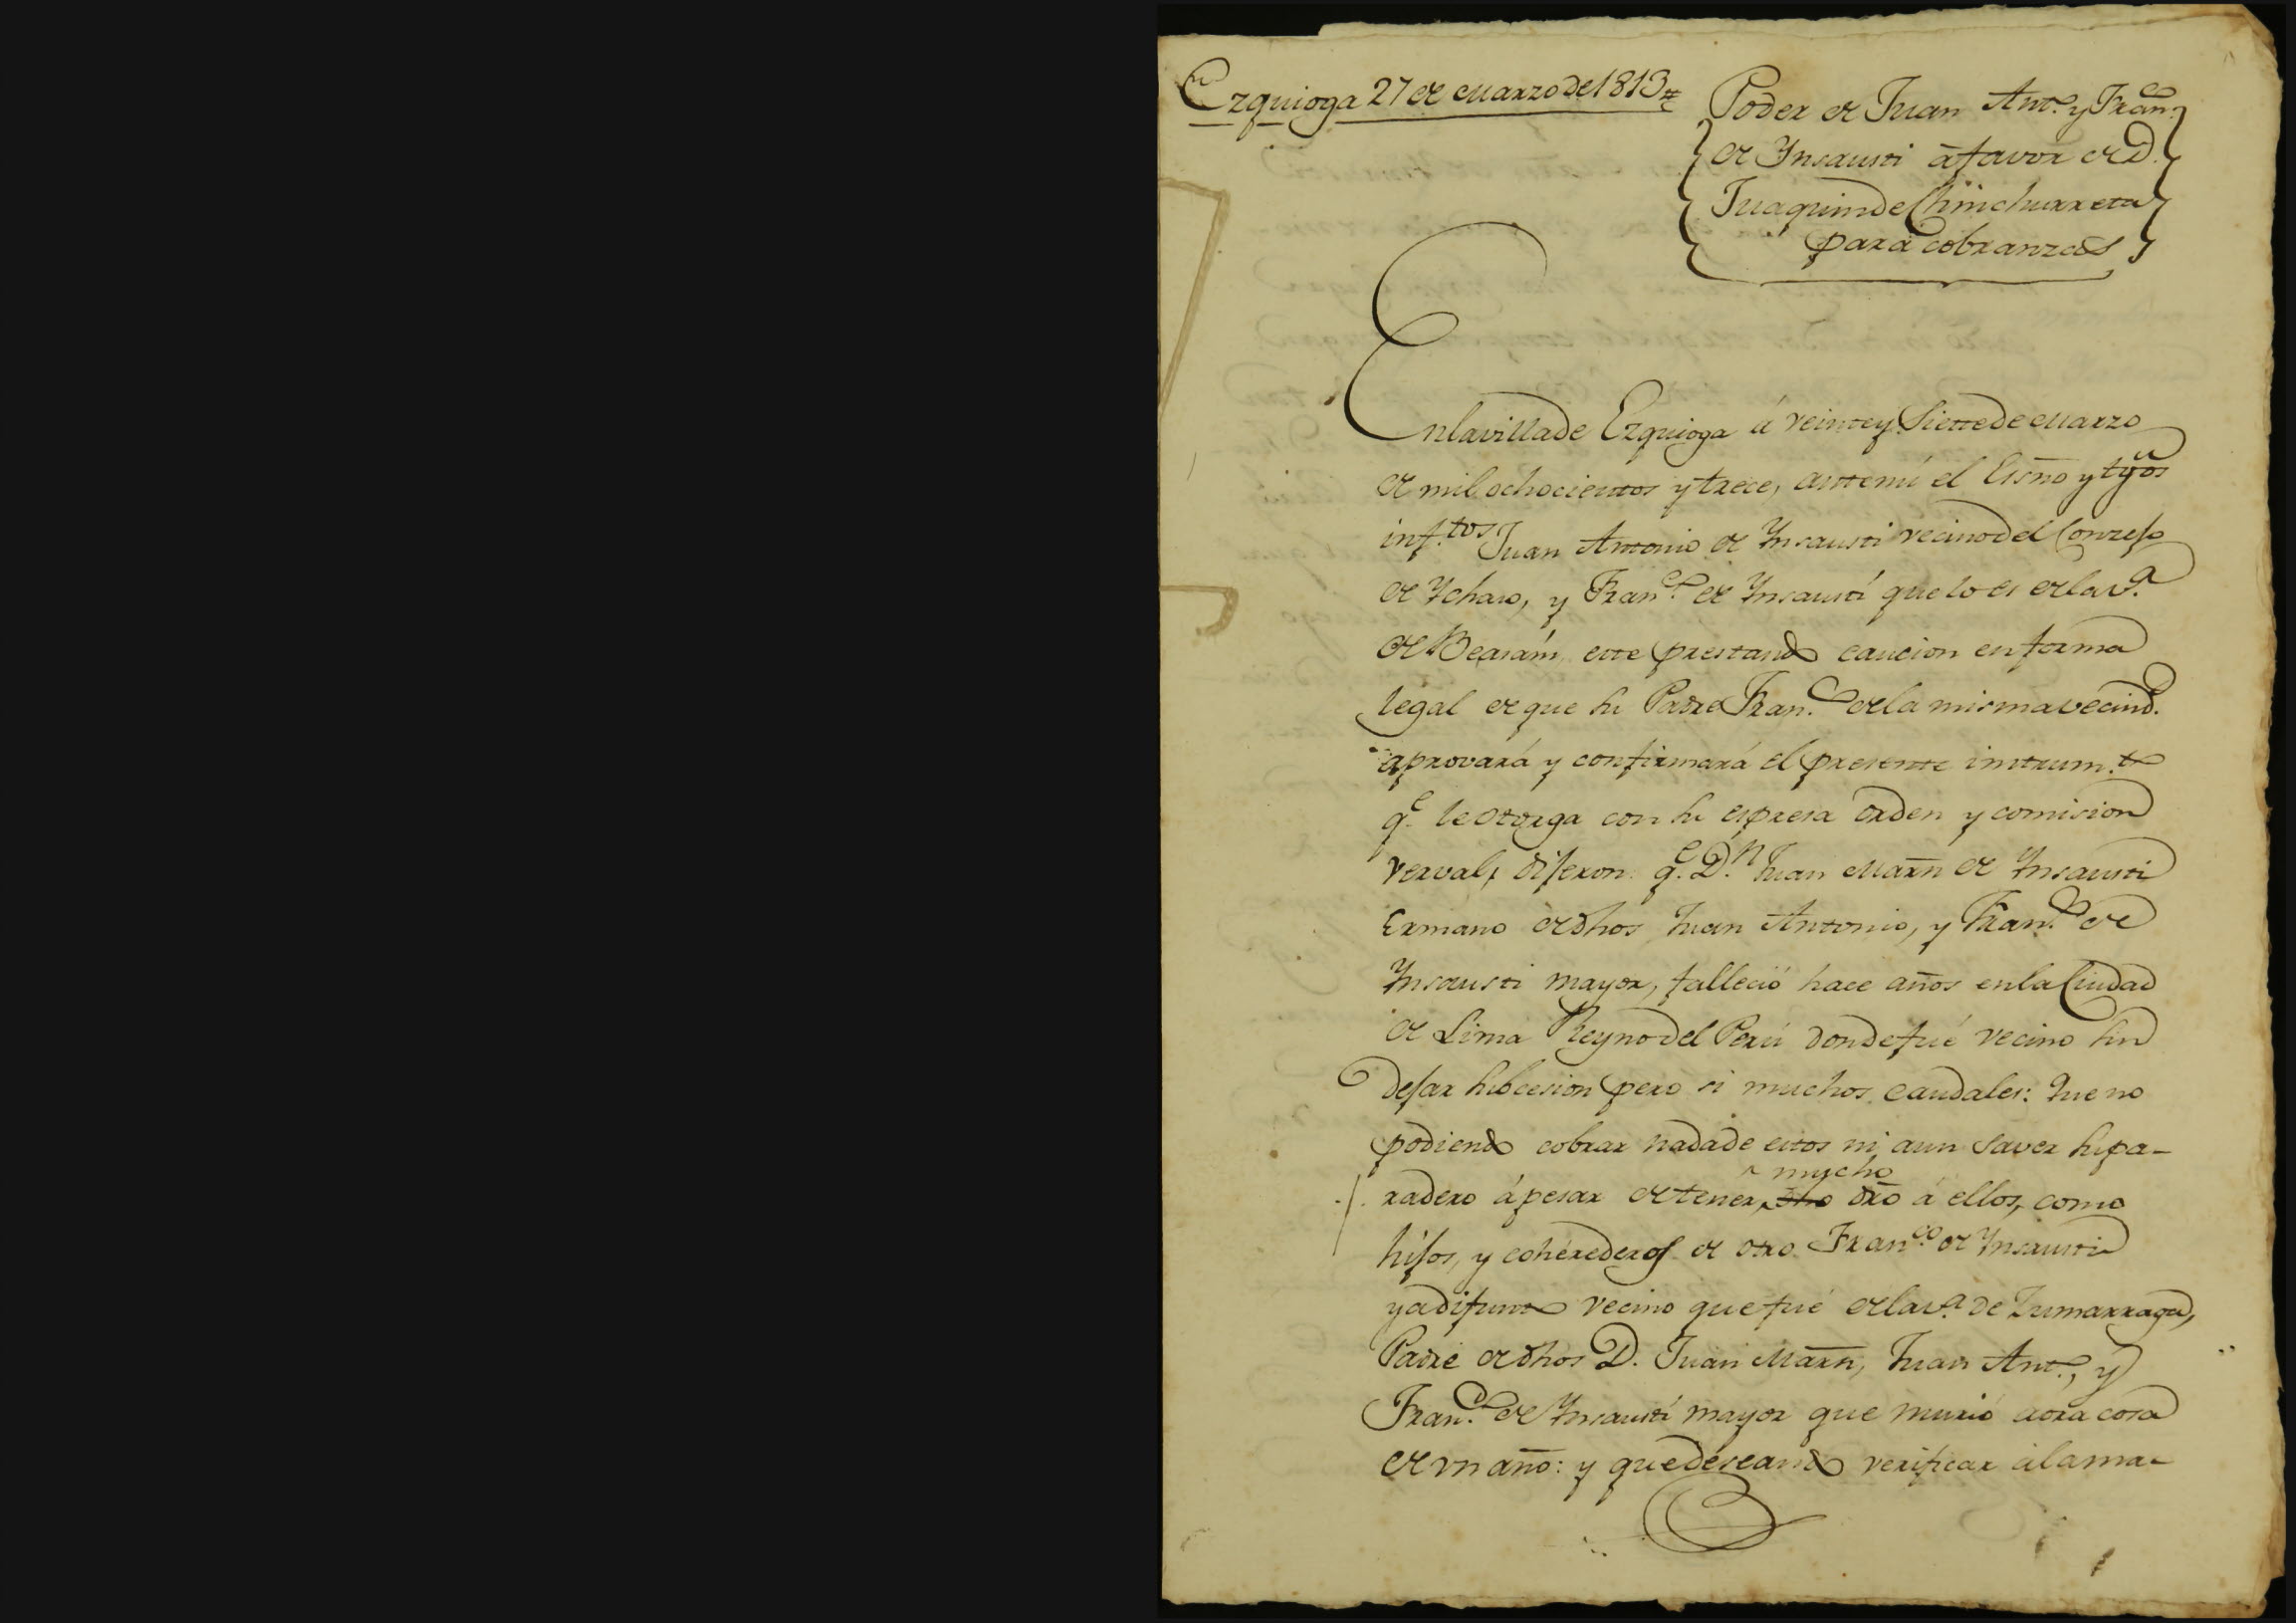 Ezquioga 27 de Marzo de 1813
Poder de Juan Ant.º y Fran.co
de Ynsausti á favor de D.
Juaquin de Chinchurreta
para cobranzas
En la villa de Ezquioga á veinte y Siette de Marzo
de mil ochocientos y trece, ante mi el Esno y tgos
inf.tos Juan Antonio de Ynsausti vecino del Conzejo
de Ychaso, y Fran.co de Ynsausti que lo es de la v.ª
de Beasain, este prestando caucion en forma
legal de que su Padre Fran.co de la misma vecind.d
aprovará y confirmará el presente instrum.to
q.e le otorga con su espresa orden y comision
verval, dijeron: q.e D.n Juan Marn de Ynsausti
Ermano de dhos Juan Antonio, y Fran.co de
Ynsausti mayor, falleció hace años en la Ciudad
de Lima Reyno del Perú donde fué vecino sin
dejar subcesion pero si muchos caudales: Que no
podiendo cobrar nada de estos ni aun saver su pa-
mucho
radero á pesar de tener dro á ellos, como
hijos, y cohérederos de otro Fran.co de Ynsausti
ya difunto vecino que fué de la v.ª de Zumarraga,
Padre de dhos D. Juan Marn, Juan Ant.º, y
Fran.co de Ynsausti mayor que murió aora cosa
de vn año: y que deseando verificar á la ma-